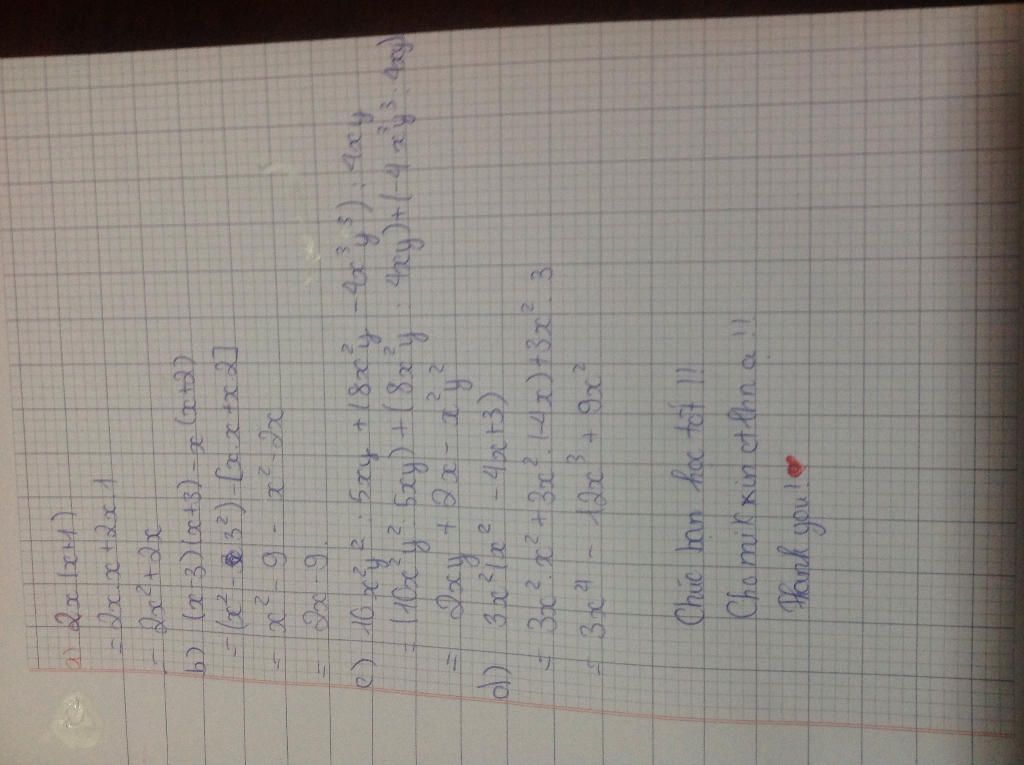 a) 2x(x+1)
= 2x.x+2x.1
= 2x²+2x
b) (x-3)(x+3)-x(x+2)
= (x²-3²)-[x.x+x.2]
= x²-9-x²-2x
= 2x-9
c) 10x²y²:5xy+(8x²y-4x³y³):4xy
= (10x²y²:5xy)+(8x²y:4xy)+(-4x³y³:4xy)
= 2xy+2x-x²y²
d) 3x²(x²-4x+3)
= 3x².x²+3x².(-4x)+3x².3
= 3x⁴-12x³+9x²
Chúc bạn học tốt!!
Cho mik xin ctlhn ạ!!
Thank you!